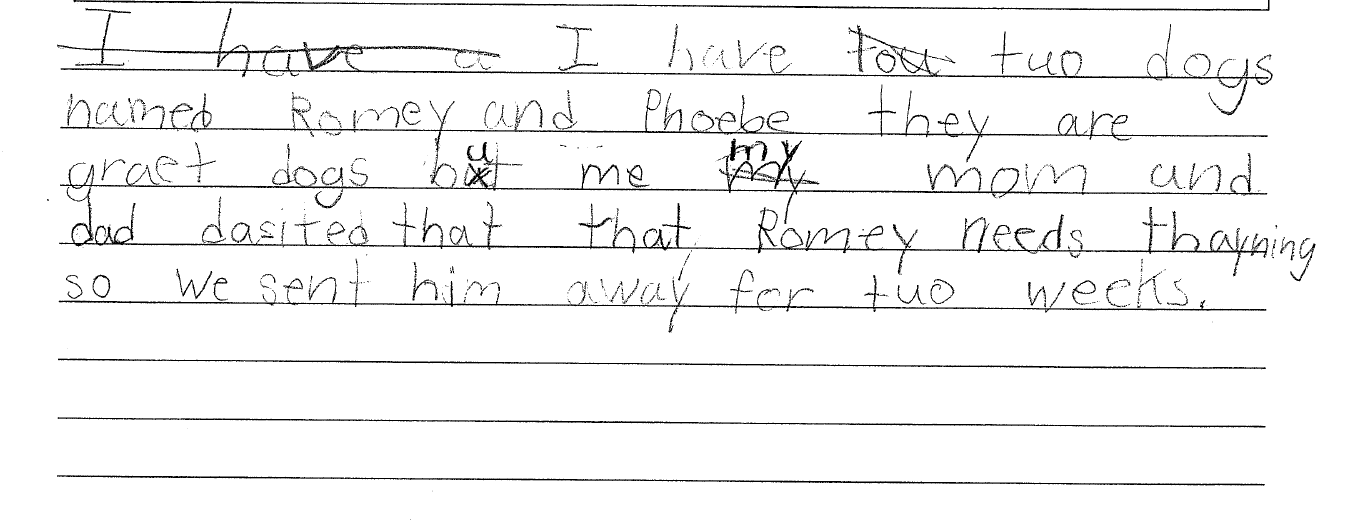 I have a I have tou tuo dogs
named Romey and Phoebe they are
graet dogs but me my mom and
dad dasited that that Romey needs thayning
so we sent him away for tuo weeks.